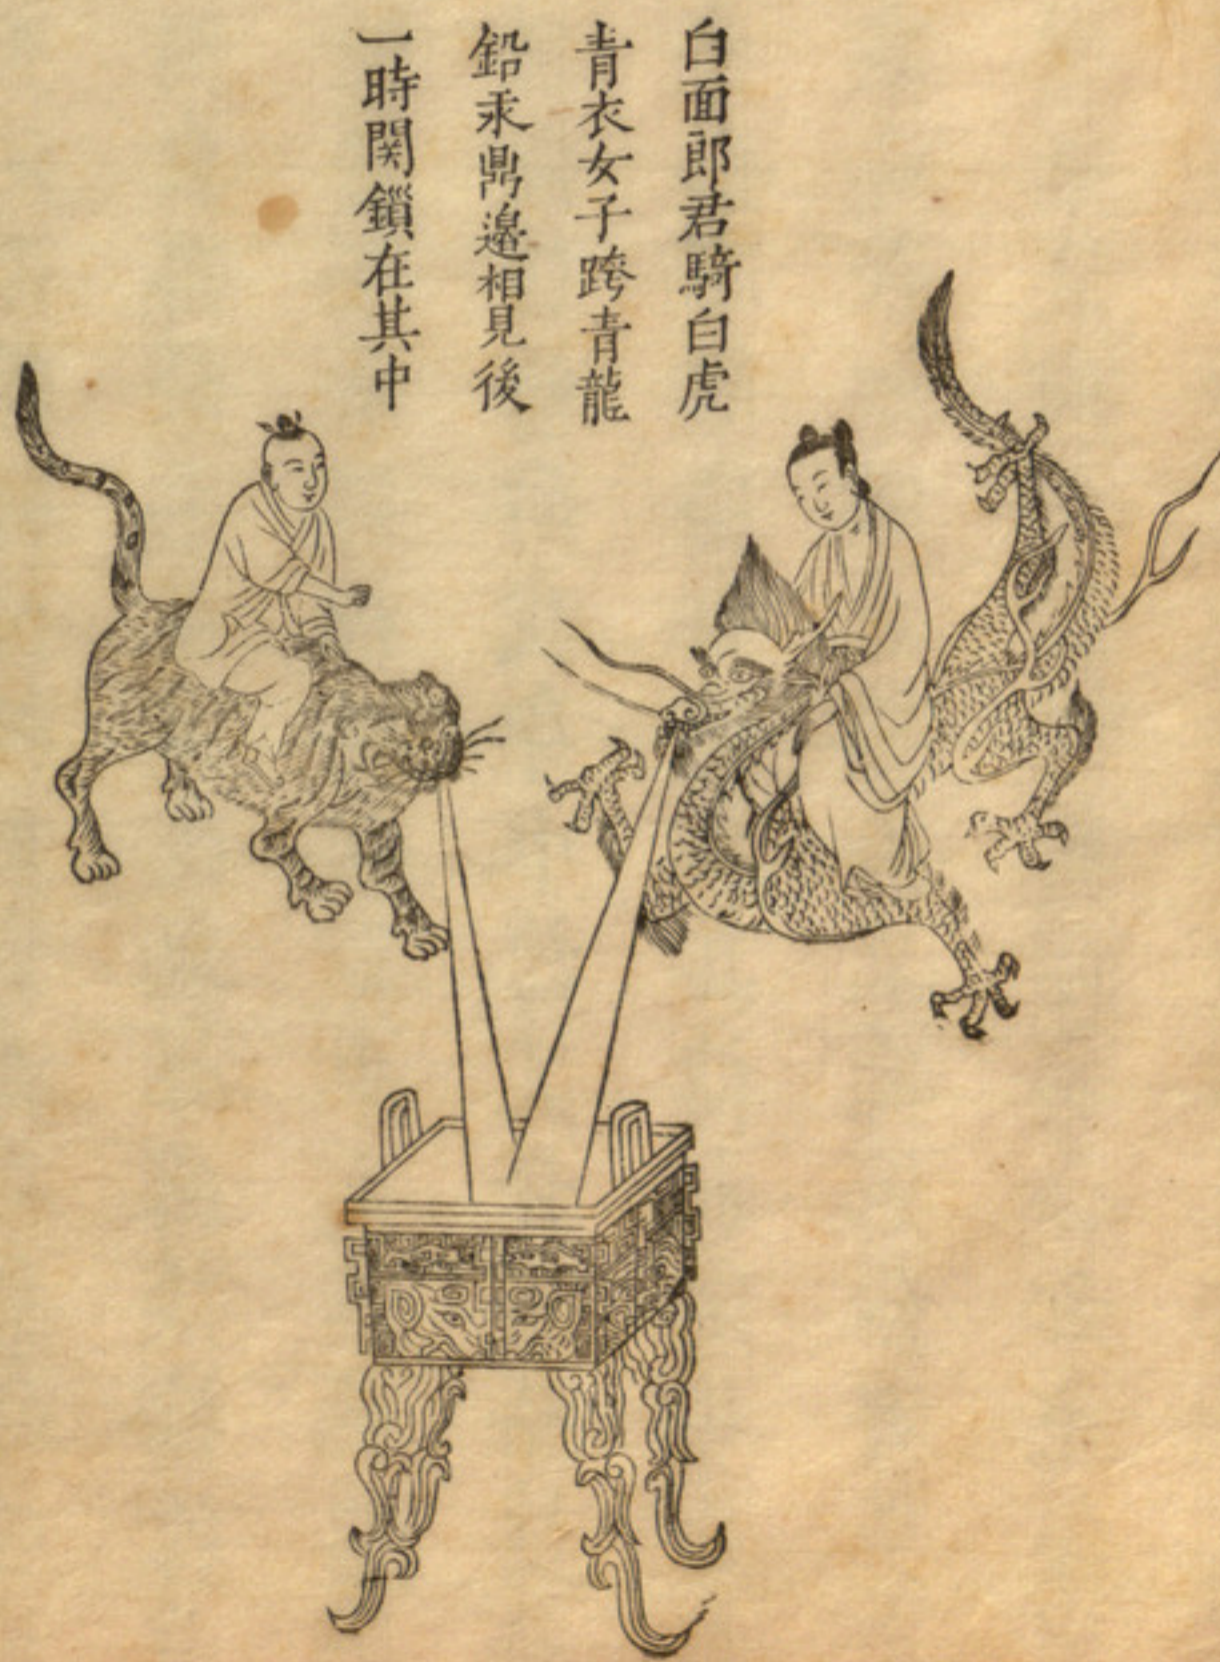 白面郎君騎白虎
青衣女子跨青龍
鉛汞鼎邉相見後
一時関鎖在其中